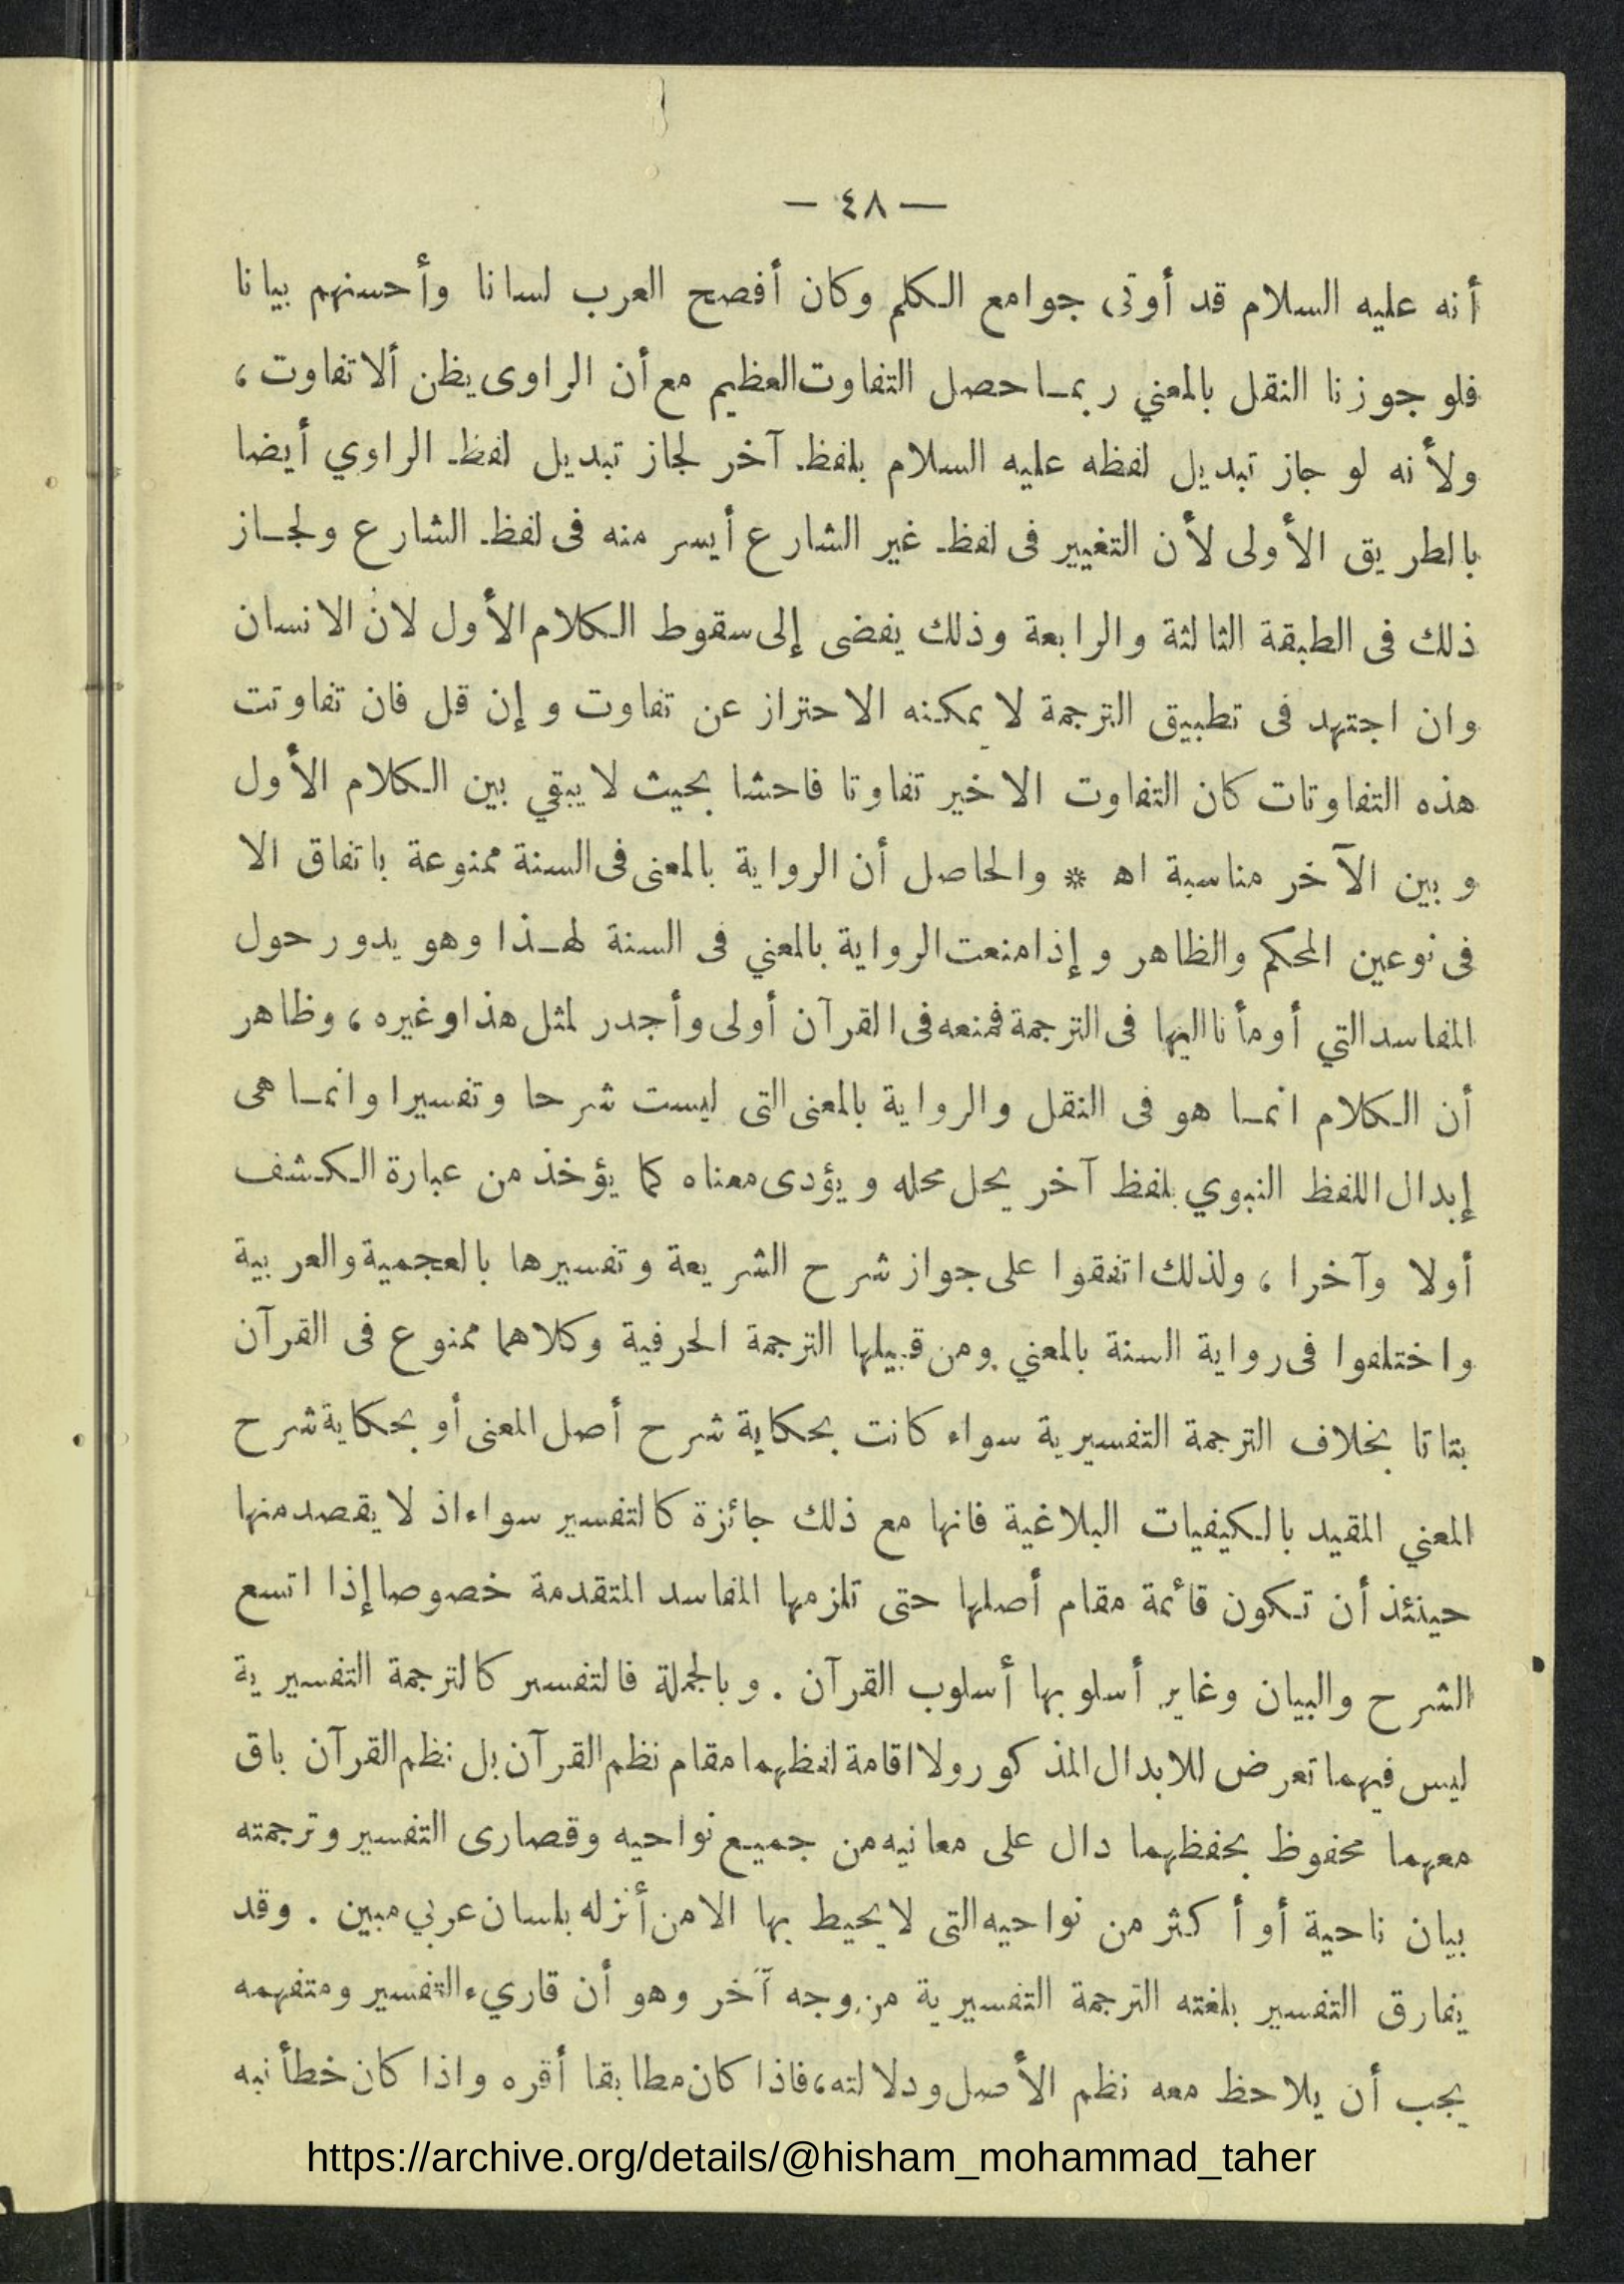 — ٤٨ —
أنه عليه السلام قد أوتى جوامع الكلم وكان أفصح العرب لسانا وأحسنهم بيانا
فلو جوزنا النقل بالمعني ربمـا حصل التفاوت العظيم مع أن الراوى يظن ألا تفاوت ،
ولأنه لو جاز تبديل لفظه عليه السلام بلفظ آخر لجاز تبديل لفظ الراوي أيضا
بالطريق الأولى لأن التغيير فى لفظ غير الشارع أيسر منه فى لفظ الشارع ولجـاز
ذلك فى الطبقة الثالثة والرابعة وذلك يفضى إلى سقوط الكلام الأول لان الانسان
وان اجتهد فى تطبيق الترجمة لا يمكنه الاحتراز عن تفاوت وإن قل فان تفاوتت
هذه التفاوتات كان التفاوت الاخير تفاوتا فاحشا بحيث لا يبقي بين الكلام الأول
وبين الآخر مناسبة اه * والحاصل أن الرواية بالمعنى فى السنة ممنوعة باتفاق الا
فى نوعين المحكم والظاهر وإذا منعت الرواية بالمعني فى السنة لهـذا وهو يدور حول
المفاسد التي أومأنا اليها فى الترجمة فمنعه فى القرآن أولى وأجدر لمثل هذا وغيره ، وظاهر
أن الكلام انمـا هو فى النقل والرواية بالمعنى التى ليست شرحا وتفسيرا وانمـا هى
إبدال اللفظ النبوي بلفظ آخر يحل محله ويؤدى معناه كما يؤخذ من عبارة الكشف
أولا وآخرا ، ولذلك اتفقوا على جواز شرح الشريعة وتفسيرها بالعجمية والعربية
واختلفوا فى رواية السنة بالمعني ومن قبيلها الترجمة الحرفية وكلاهما ممنوع فى القرآن
بتاتا بخلاف الترجمة التفسيرية سواء كانت بحكاية شرح أصل المعنى أو بحكاية شرح
المعني المقيد بالكيفيات البلاغية فانها مع ذلك جائزة كالتفسير سواء اذ لا يقصد منها
حينئذ أن تكون قائمة مقام أصلها حتى تلزمها المفاسد المتقدمة خصوصا إذا اتسع
الشرح والبيان وغاير أسلوبها أسلوب القرآن . وبالجملة فالتفسير كالترجمة التفسيرية
ليس فيهما تعرض للابدال المذكور ولا اقامة لفظهما مقام نظم القرآن بل نظم القرآن باق
معهما محفوظ بحفظهما دال على معانيه من جميع نواحيه وقصارى التفسير وترجمته
بيان ناحية أو أكثر من نواحيه التى لا يحيط بها الا من أنزله بلسان عربي مبين . وقد
يفارق التفسير بلغته الترجمة التفسيرية من وجه آخر وهو أن قاريء التفسير ومتفهمه
يجب أن يلاحظ معه نظم الأصل ودلالته، فاذا كان مطابقا أقره واذا كان خطأ نبه
https://archive.org/details/@hisham_mohammad_taher